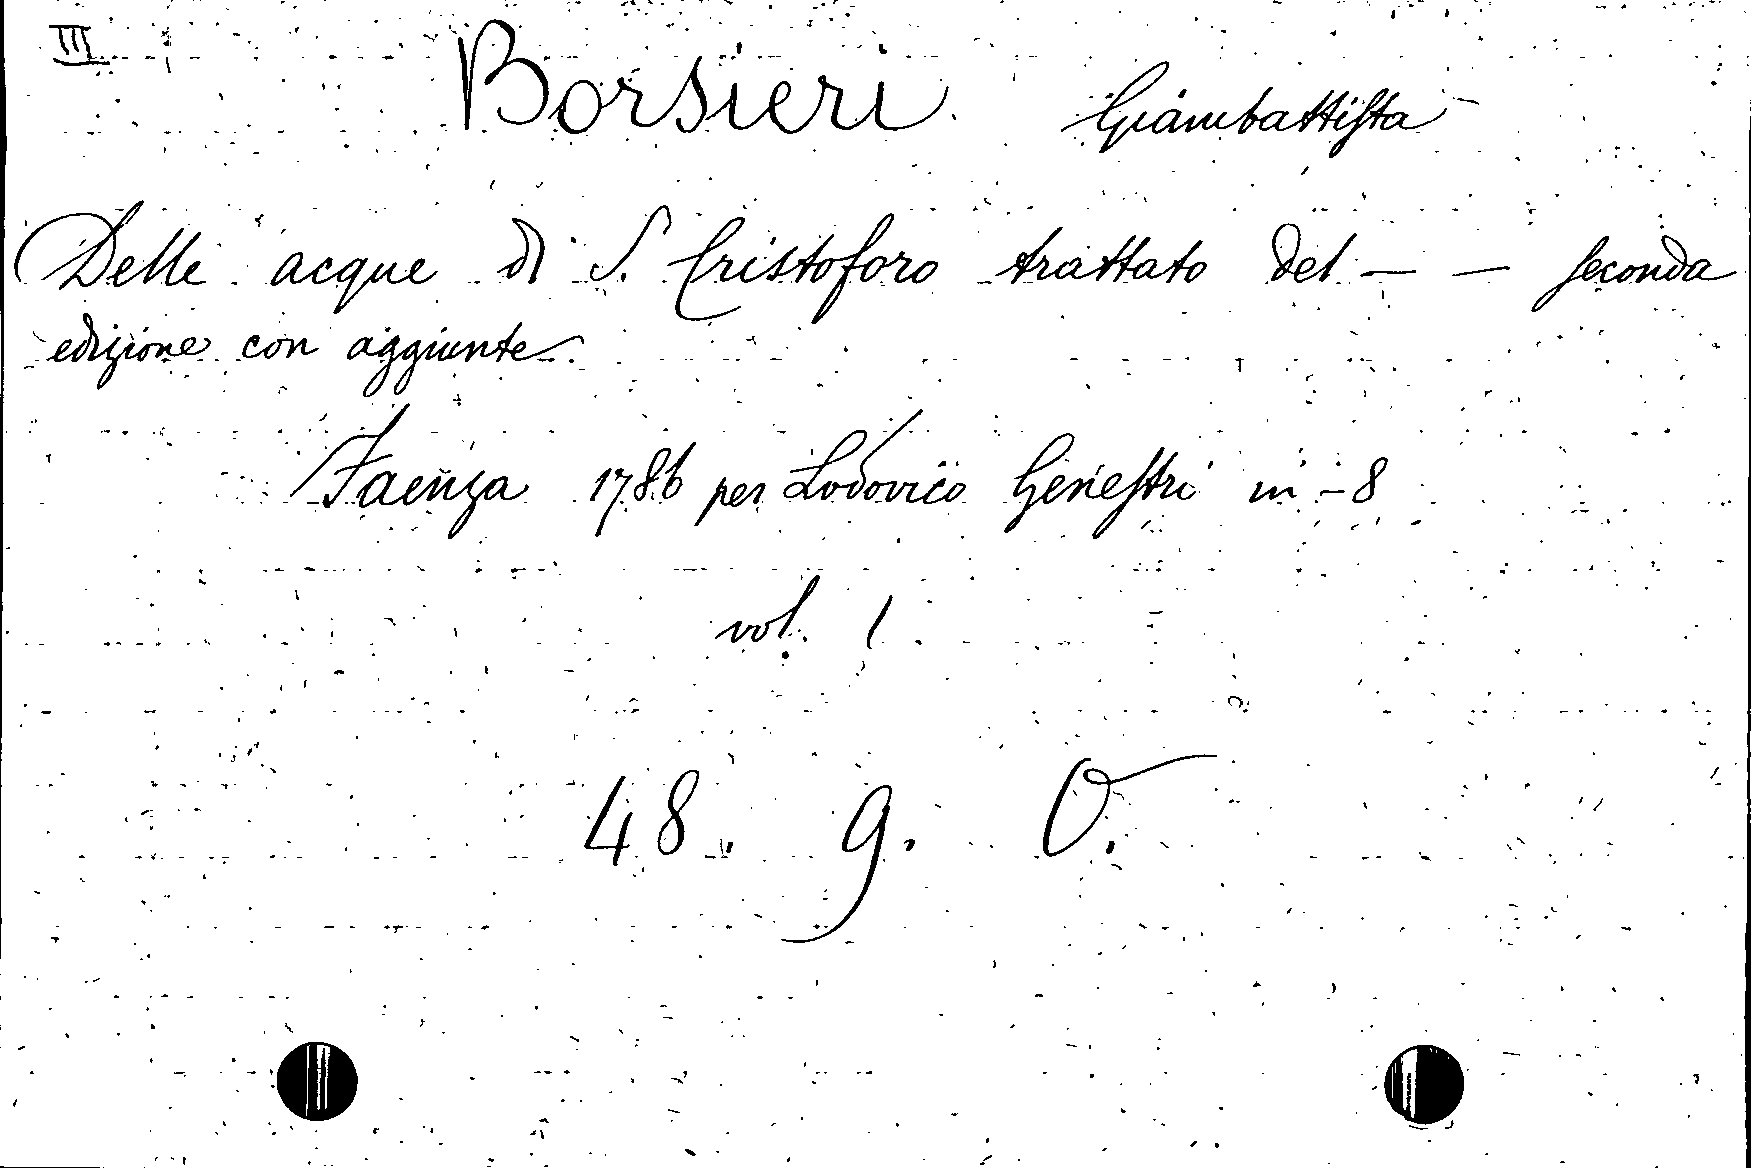 III
Borsieri Giambattista
Delle acque di S. Cristoforo trattato del — — seconda
edizione con aggiunte.
Faenza 1786 per Lodovico Genestri in-8
vol. 1
48. 9. O.